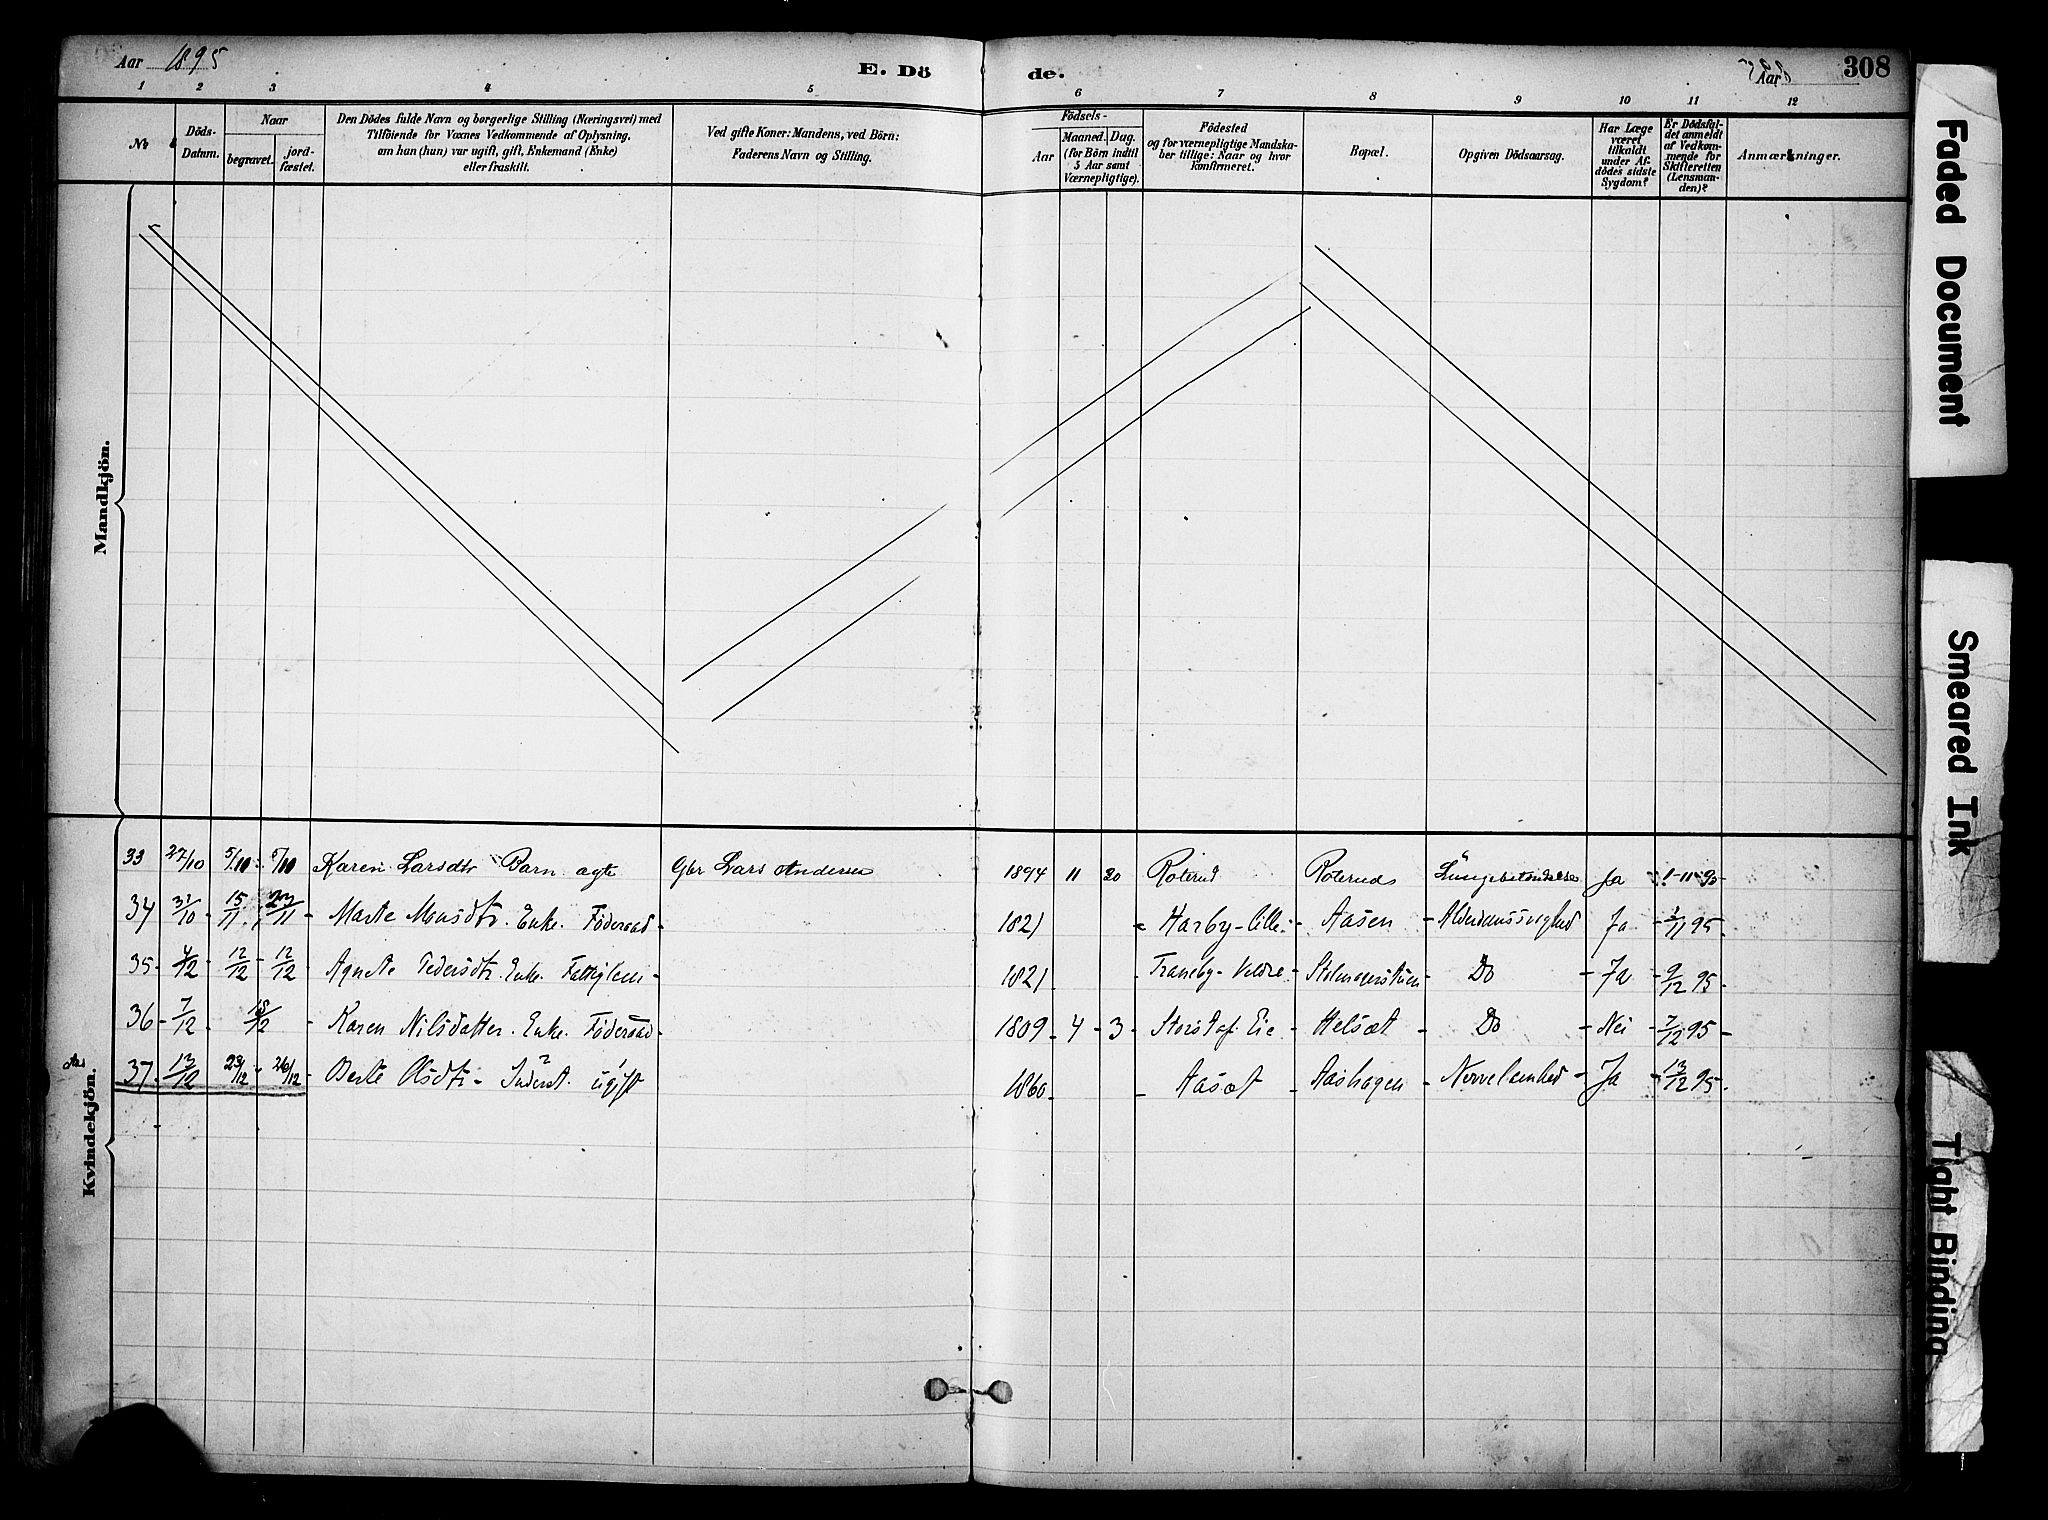 Aar 1895
E. Dö
de.
Aar
308
1 2 3 4 5 6 7 8 9 10 11 12
No
Döds-Datum.
Naar
begravet.
jord-fæstet.
Den Dödes fulde Navn og borgerlige Stilling (Næringsvei) med
Tilföiende for Voxnes Vedkommende af Oplysning,
om han (hun) var ugift, gift, Enkemand (Enke)
eller fraskilt.
Ved gifte Koner: Mandens, ved Börn:
Faderens Navn og Stilling.
Födsels-
Aar
Maaned. Dag.
(for Börn indtil
5 Aar samt
Værnepligtige).
Födested
og for værnepligtige Mandska-
ber tillige: Naar og hvor
konfirmeret.
Bopæl.
Opgiven Dödsaarsag.
Har Læge
været
tilkaldt
under Af-
dödes sidste
Sygdom?
Er Dödsfal-
det anmeldt
af Vedkom-
mende for
Skifteretten
(Lensman-
den)?
Anmærkninger.
Mandkjön.
Kvindekjön.
33 27/10 5/10 5/10 Karen Larsdtr Barn ægte Gbr Lars Andersen 1894 11 20 Roterud Roteruds Lungebetændelse Ja
34 31/10 - 15/11 23/11 - Marte Monsdtr. Enke. Föderaad - 1821 - Harby-Lille - Aasen - Alderdomssvaghed Ja - 1/11 95 -
35 - 4/12 - 12/12 - 12/12 - Agnete Pedersdtr. Enke. Fattiglem - 1821 - Traneby - Veldre - - Do - Ja - 9/12 95 -
36 - 7/12 - 18/12 - Karen Nilsdatter. Enke. Föderaad - 1809 - 4 - 3 - Eie - Helsæt - Do - Nei - 7/12 95 -
37 - 13/12 23/12 - 26/12 - Berte Olsdtr - Inderst. ugift 1860 - Aasæt - Aashagen - Ja - 13/12 95 -
Faded Document
Smeared Ink
Tight Binding